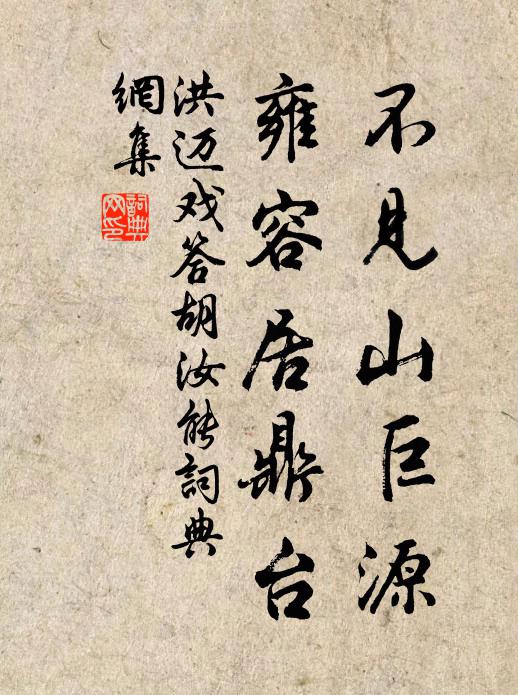 不见山巨源
雍容居鼎台
洪迈戏答胡汝能詞典
網集
詞典
网印